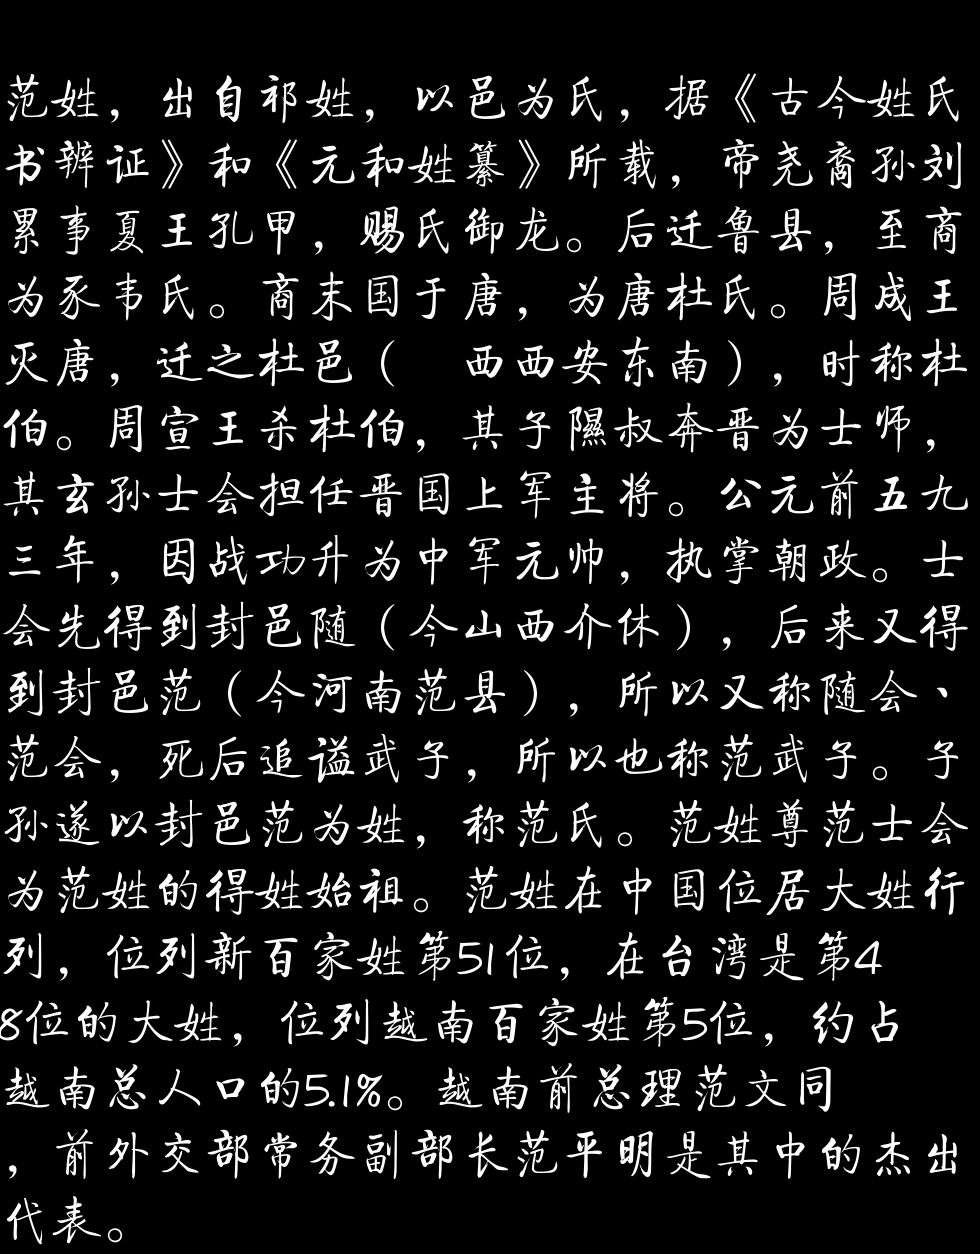 范姓，出自祁姓，以邑为氏，据《古今姓氏
书辨证》和《元和姓纂》所载，帝尧裔孙刘
累事夏王孔甲，赐氏御龙。后迁鲁县，至商
为豕韦氏。商末国于唐，为唐杜氏。周成王
灭唐，迁之杜邑（　西西安东南），时称杜
伯。周宣王杀杜伯，其子隰叔奔晋为士师，
其玄孙士会担任晋国上军主将。公元前五九
三年，因战功升为中军元帅，执掌朝政。士
会先得到封邑随（今山西介休），后来又得
到封邑范（今河南范县），所以又称随会、
范会，死后追谥武子，所以也称范武子。子
孙遂以封邑范为姓，称范氏。范姓尊范士会
为范姓的得姓始祖。范姓在中国位居大姓行
列，位列新百家姓第51位，在台湾是第4
8位的大姓，位列越南百家姓第5位，约占
越南总人口的5.1%。越南前总理范文同
，前外交部常务副部长范平明是其中的杰出
代表。